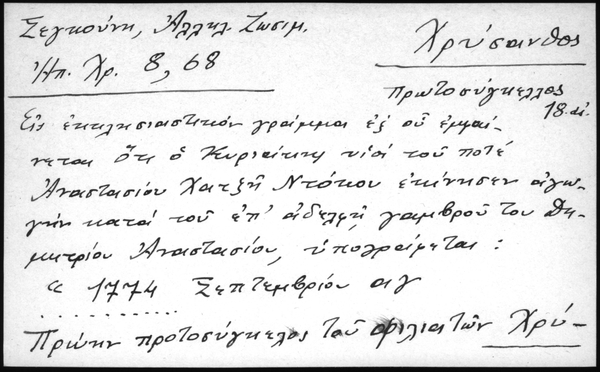 Σεγκούνη, Ἀλληλ. Ζωσιμ.
Χρύσανθος
Ἠπ. Χρ. 8, 68
Πρωτοσύγκελλος
18. αἰ.
Εἰς ἐκκλησιαστικόν γράμμα ἐξ οὗ ἐμφαί-
νεται ὅτι ὁ Κυριάκης υἱός τοῦ ποτέ
Ἀναστασίου Χατζῆ Ντόκου ἐκίνησεν ἀγω-
γήν κατά τοῦ ἐπ' ἀδελφῇ γαμβροῦ του Δη-
μητρίου Ἀναστασίου, ὑπογράφεται :
« 1774 Σεπτεμβρίου αγ
. . . . . . . . . . . . .
Πρώην προτοσύγκελος τοῦ φιλιατῶν Χρύ-